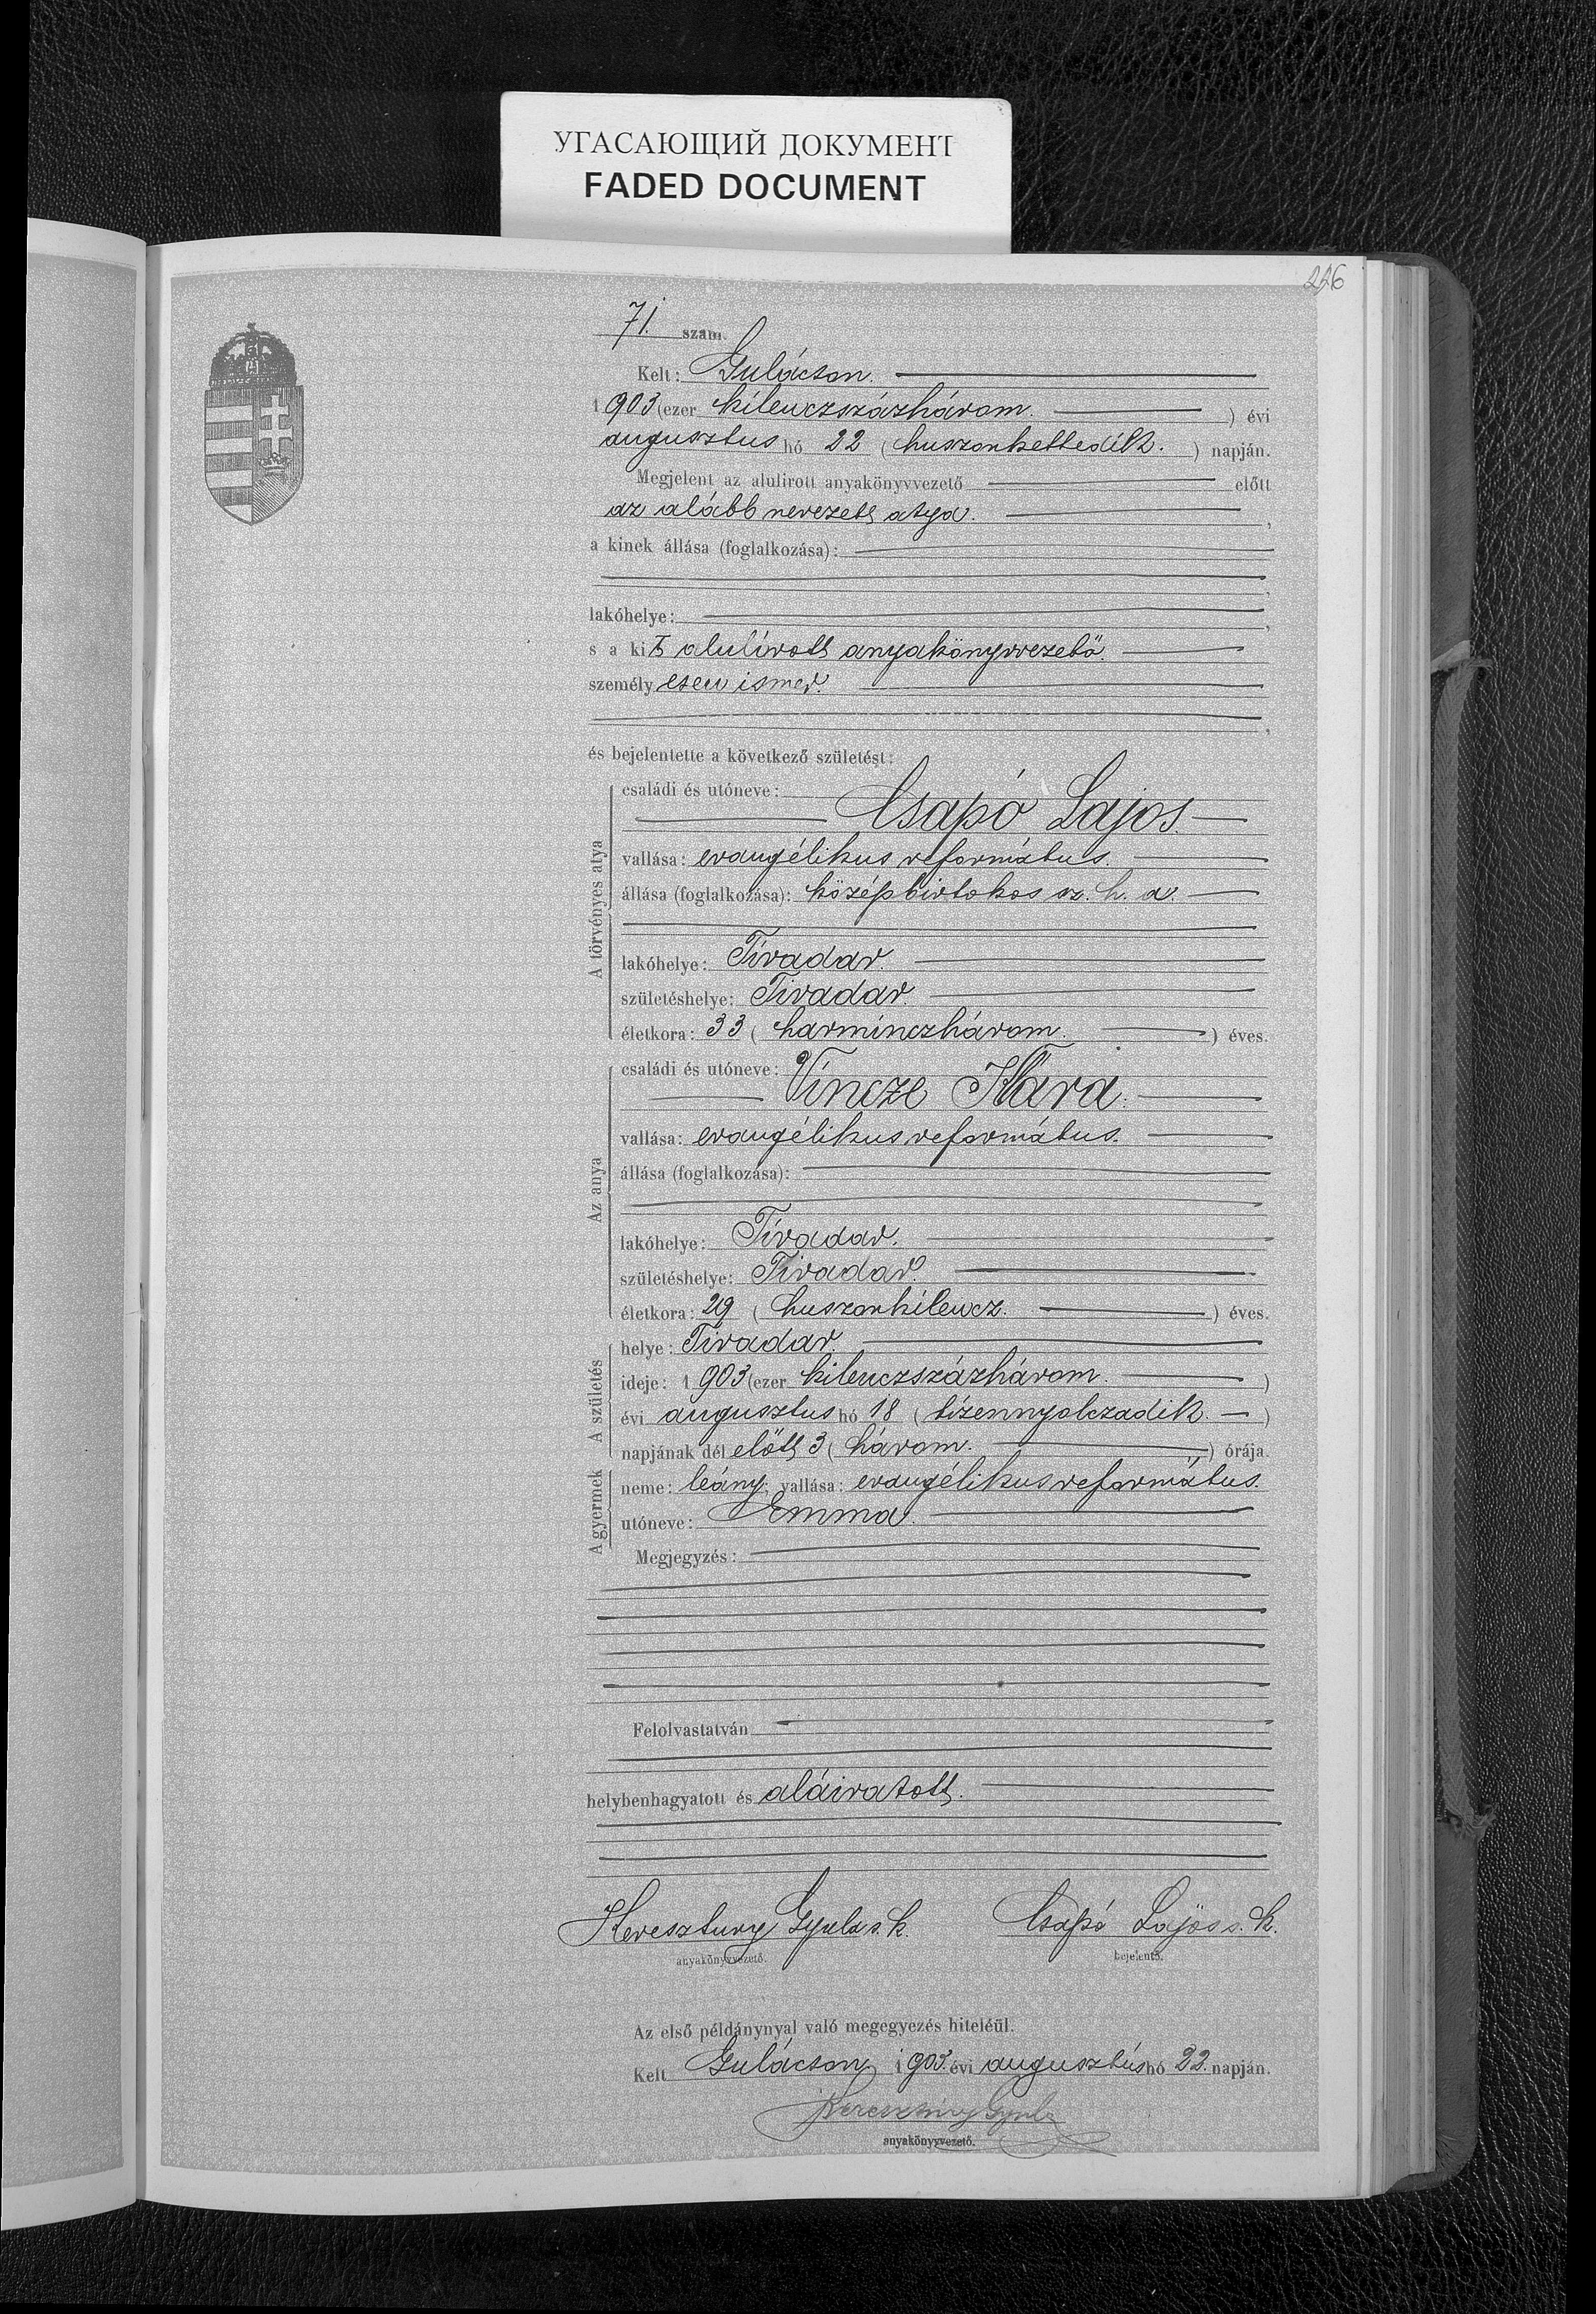 УГАСАЮЩИЙ ДОКУМЕНТ
FADED DOCUMENT
226
71. szám.
Kelt: Gulácson.
1903 (ezer kilenczszázhárom. ) évi
augusztus hó 22 (huszonkettedik. ) napján.
Megjelent az alulirott anyakönyvvezető előtt
az alább nevezett atya. ,
a kinek állása (foglalkozása):
,
lakóhelye: ,
s a kit alulírott anyakönyvvezető.
személyesen ismer.
,
és bejelentette a következő születést:
A törvényes atya
családi és utóneve:
Csapó Lajos.
vallása: evangélikus református.
állása (foglalkozása): középbirtokos sz. h. a.
lakóhelye: Tivadar.
születéshelye: Tivadar.
életkora: 33 (harminczhárom. ) éves.
Az anya
családi és utóneve:
Vincze Klára.
vallása: evangélikus református.
állása (foglalkozása):
lakóhelye: Tivadar.
születéshelye: Tivadar.
életkora: 29 (huszonkilencz. ) éves.
A születés
helye: Tivadar.
ideje: 1903 (ezer kilenczszázhárom. )
évi augusztus hó 18 (tizennyolczadik. )
napjának dél előtt 3 (három. ) órája.
A gyermek
neme: leány; vallása: evangélikus református.
utóneve: Emma.
Megjegyzés:
Felolvastatván
helybenhagyatott és aláiratott.
Keresztury Gyula s. k. Csapó Lajos s. k.
anyakönyvvezető. bejelentő.
Az első példánynyal való megegyezés hiteléül.
Kelt Gulácson, 1903. évi augusztus hó 22. napján.
Keresztury Gyula
anyakönyvvezető.